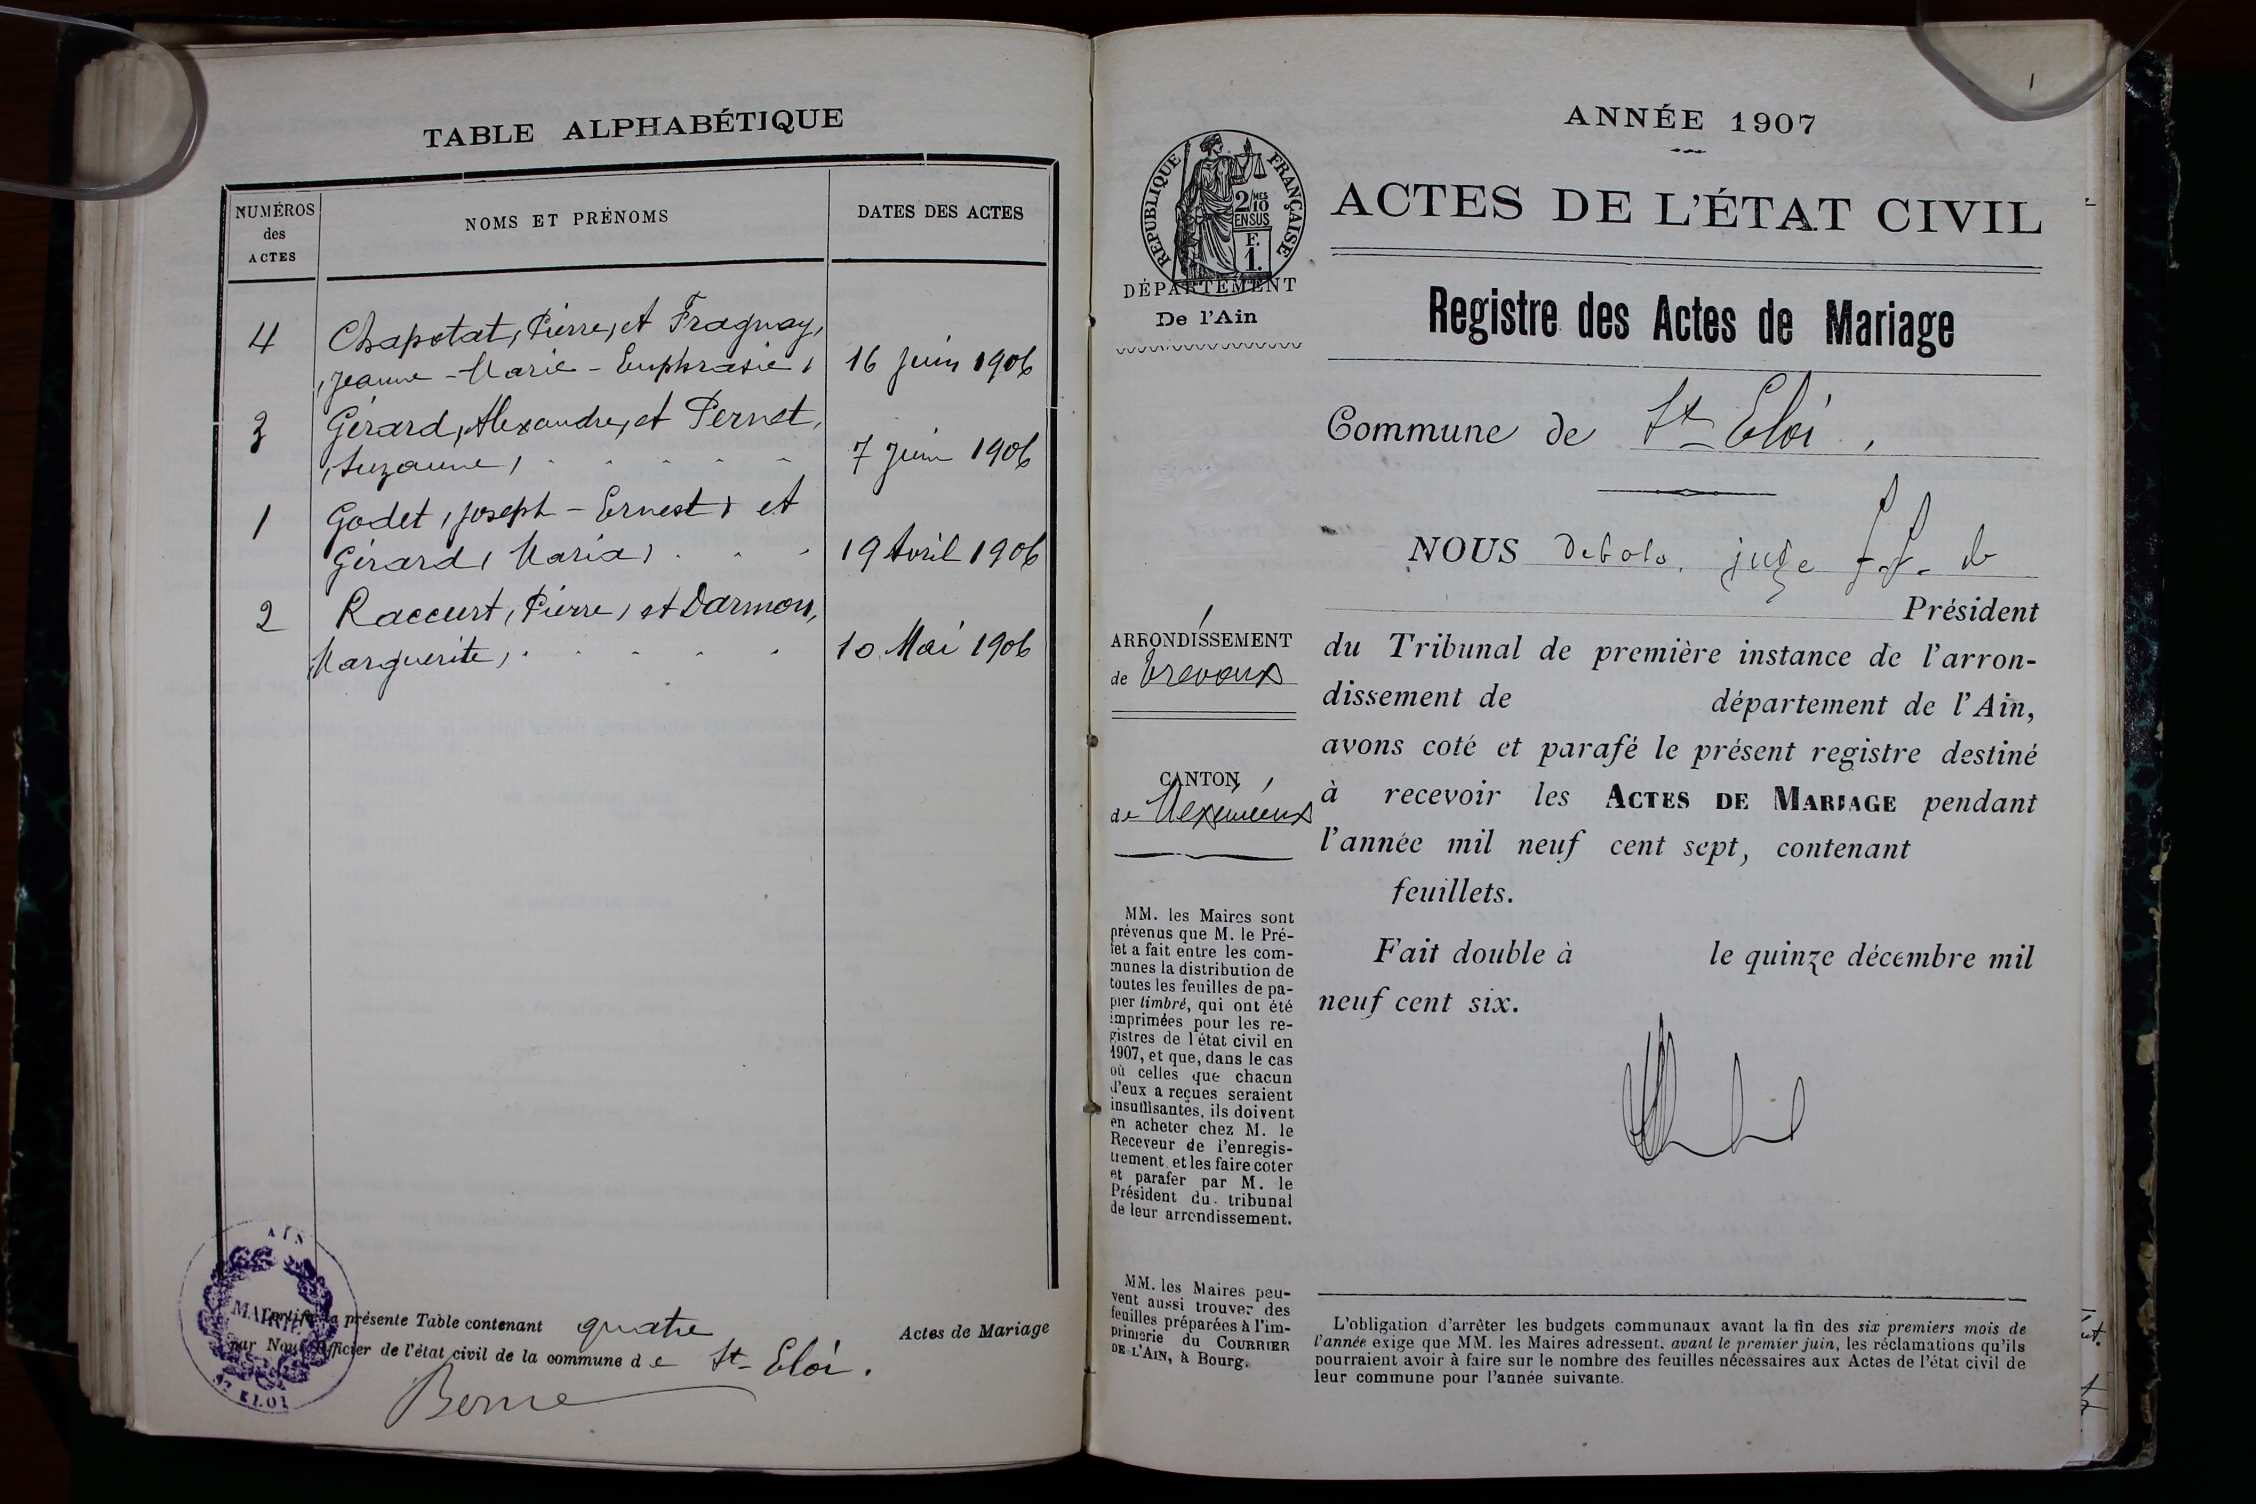 TABLE ALPHABÉTIQUE
NUMÉROS
des
ACTES
NOMS ET PRÉNOMS
DATES DES ACTES
4 Chapotat, Pierre, et Fragnay,
Jeanne-Marie-Euphrasie, 16 juin 1906
3 Gérard, Alexandre, et Pernet,
Suzanne, 7 juin 1906
1 Godet, Joseph-Ernest, et
Gérard, Maria, 19 Avril 1906
2 Raccurt, Pierre, et Darmon,
Marguerite, 10 Mai 1906
Certifié la présente Table contenant quatre Actes de Mariage
par Nous Officier de l'état civil de la commune de St-Eloi.
Berne
AIN
MAIRIE
ST ELOI
1
ANNÉE 1907
RÉPUBLIQUE FRANÇAISE
2/10 MES
EN SUS
F.
1.
ACTES DE L'ÉTAT CIVIL
DÉPARTEMENT
De l'Ain
Registre des Actes de Mariage
Commune de St-Eloi,
NOUS Debolo, juge f.f. de
Président
du Tribunal de première instance de l'arron-
dissement de département de l'Ain,
avons coté et parafé le présent registre destiné
à recevoir les ACTES DE MARIAGE pendant
l'année mil neuf cent sept, contenant
feuillets.
Fait double à le quinze décembre mil
neuf cent six.
ARRONDISSEMENT
de Trevoux
CANTON
de Meximieux
MM. les Maires sont
prévenus que M. le Pré-
fet a fait entre les com-
munes la distribution de
toutes les feuilles de pa-
pier timbré, qui ont été
imprimées pour les re-
gistres de l'état civil en
1907, et que, dans le cas
où celles que chacun
d'eux a reçues seraient
insuffisantes, ils doivent
en acheter chez M. le
Receveur de l'enregis-
trement et les faire coter
et parafer par M. le
Président du tribunal
de leur arrondissement.
MM. les Maires peu-
vent aussi trouver des
feuilles préparées à l'im-
primerie du COURRIER
DE L'AIN, à Bourg.
L'obligation d'arrêter les budgets communaux avant la fin des six premiers mois de
l'année exige que MM. les Maires adressent, avant le premier juin, les réclamations qu'ils
pourraient avoir à faire sur le nombre des feuilles nécessaires aux Actes de l'état civil de
leur commune pour l'année suivante.